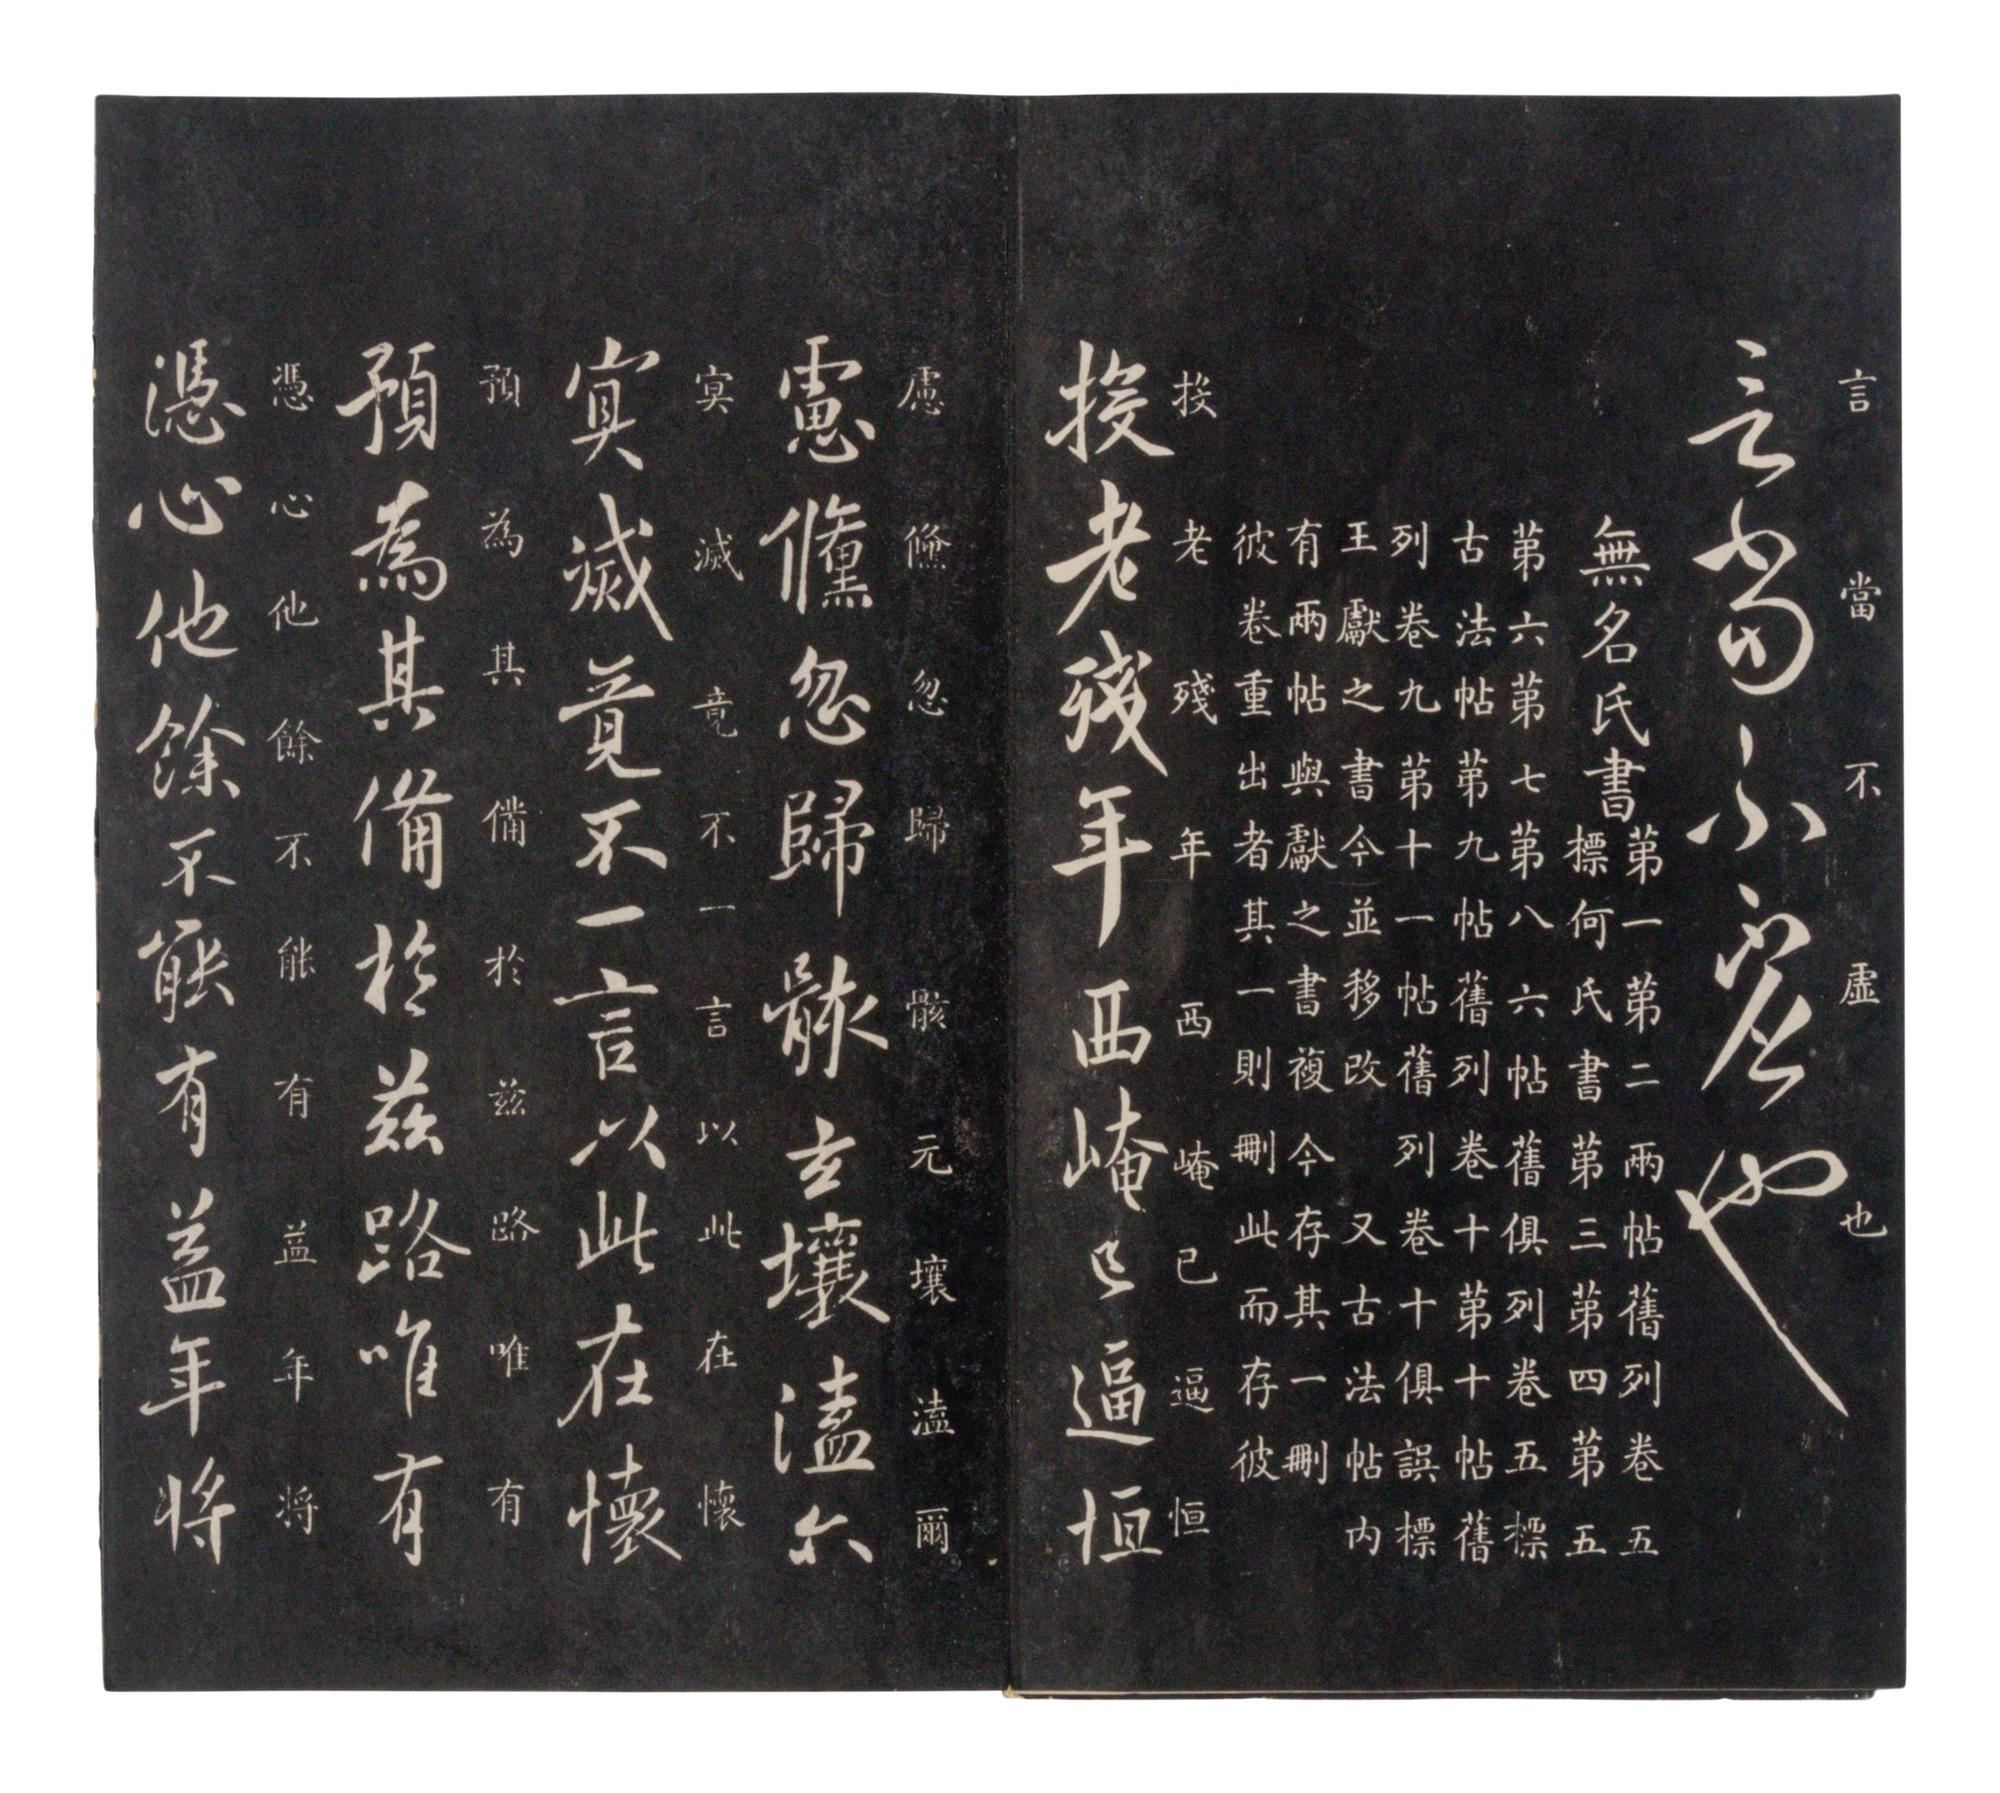 言當不虛也
言當不虛也
無名氏書
第一第二兩帖舊列卷五
標何氏書第三第四第五
第六第七第八六帖舊俱列卷五標
古法帖第九帖舊列卷十第十帖舊
列卷九第十一帖舊列卷十俱誤標
王獻之書今並移改 又古法帖內
有兩帖與獻之書複今存其一刪
彼卷重出者其一則刪此而存彼
投老殘年西崦已逼恒
投老殘年西崦已逼恒
慮倐忽歸骸元壤溘爾
慮儵忽歸骸玄壤溘尒
㝠滅竟不一言以此在懷
㝠滅竟不一言以此在懷
預為其備於茲路唯有
預為其備於茲路唯有
憑心他餘不能有益年将
憑心他餘不能有益年将